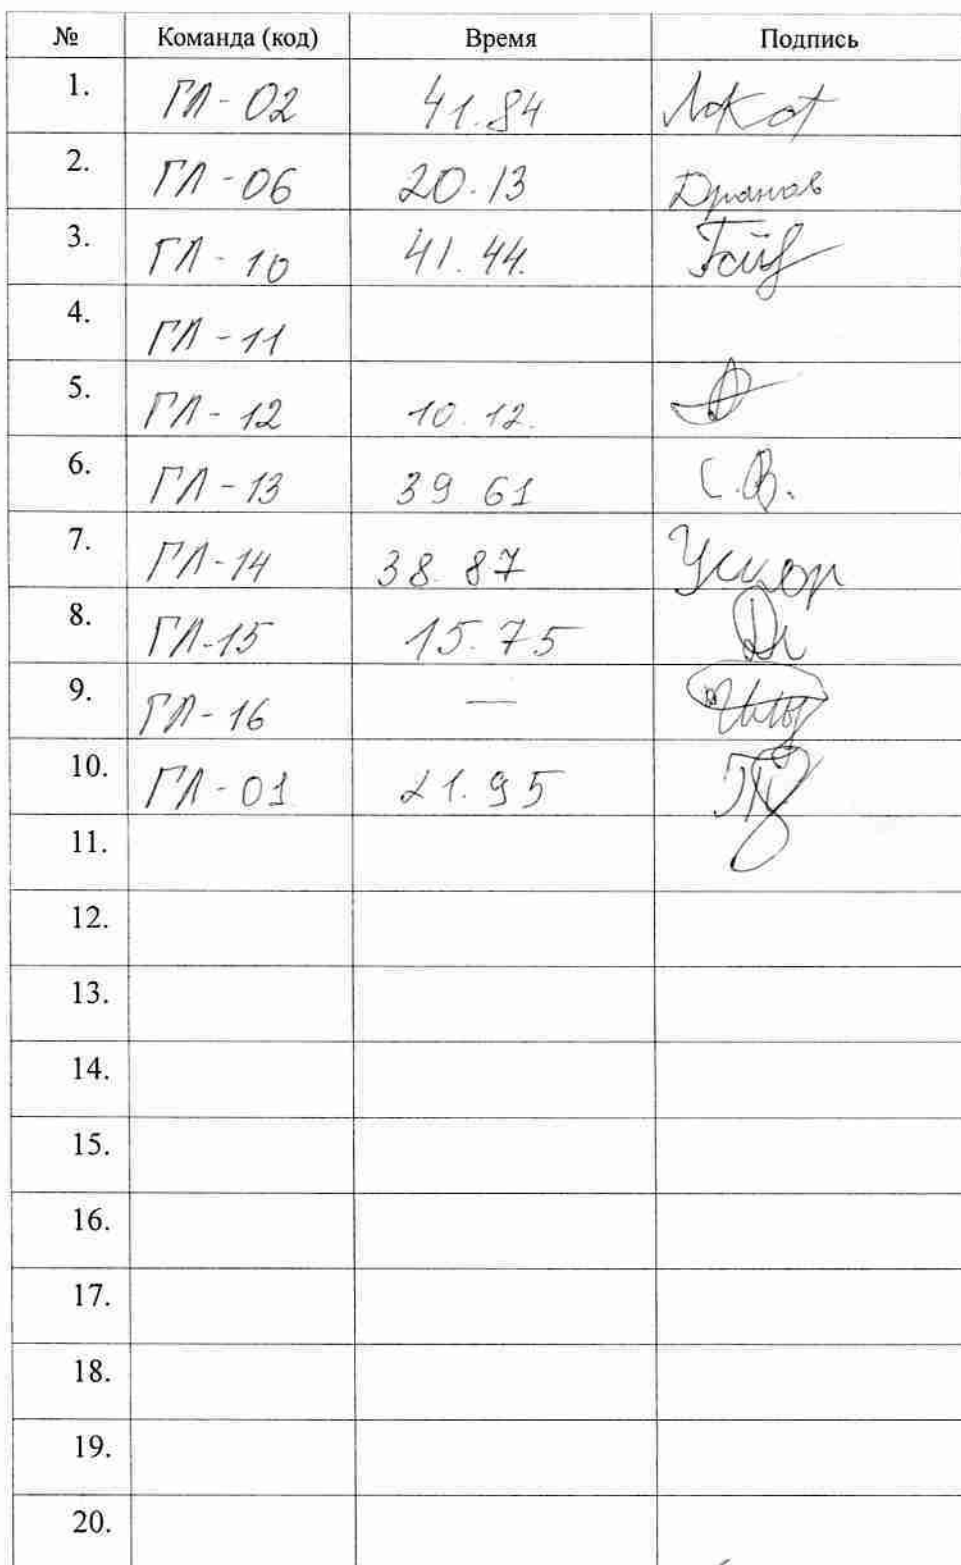 № Команда (код) Время Подпись
1. ГЛ-02 41.84
2. ГЛ-06 20.13
3. ГЛ-10 41.44.
4. ГЛ-11
5. ГЛ-12 10.12.
6. ГЛ-13 39 61 С.В.
7. ГЛ-14 38.87
8. ГЛ-15 15.75
9. ГЛ-16 —
10. ГЛ-01 21.95
11.
12.
13.
14.
15.
16.
17.
18.
19.
20.